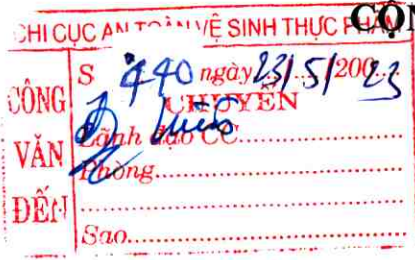 CỘN
CHI CỤC AN TOÀN VỆ SINH THỰC PHẨM
CÔNG VĂN ĐẾN
S 440 ngày 23/5/200 23
CHUYỂN
Lãnh đạo CC
Phòng
Sao